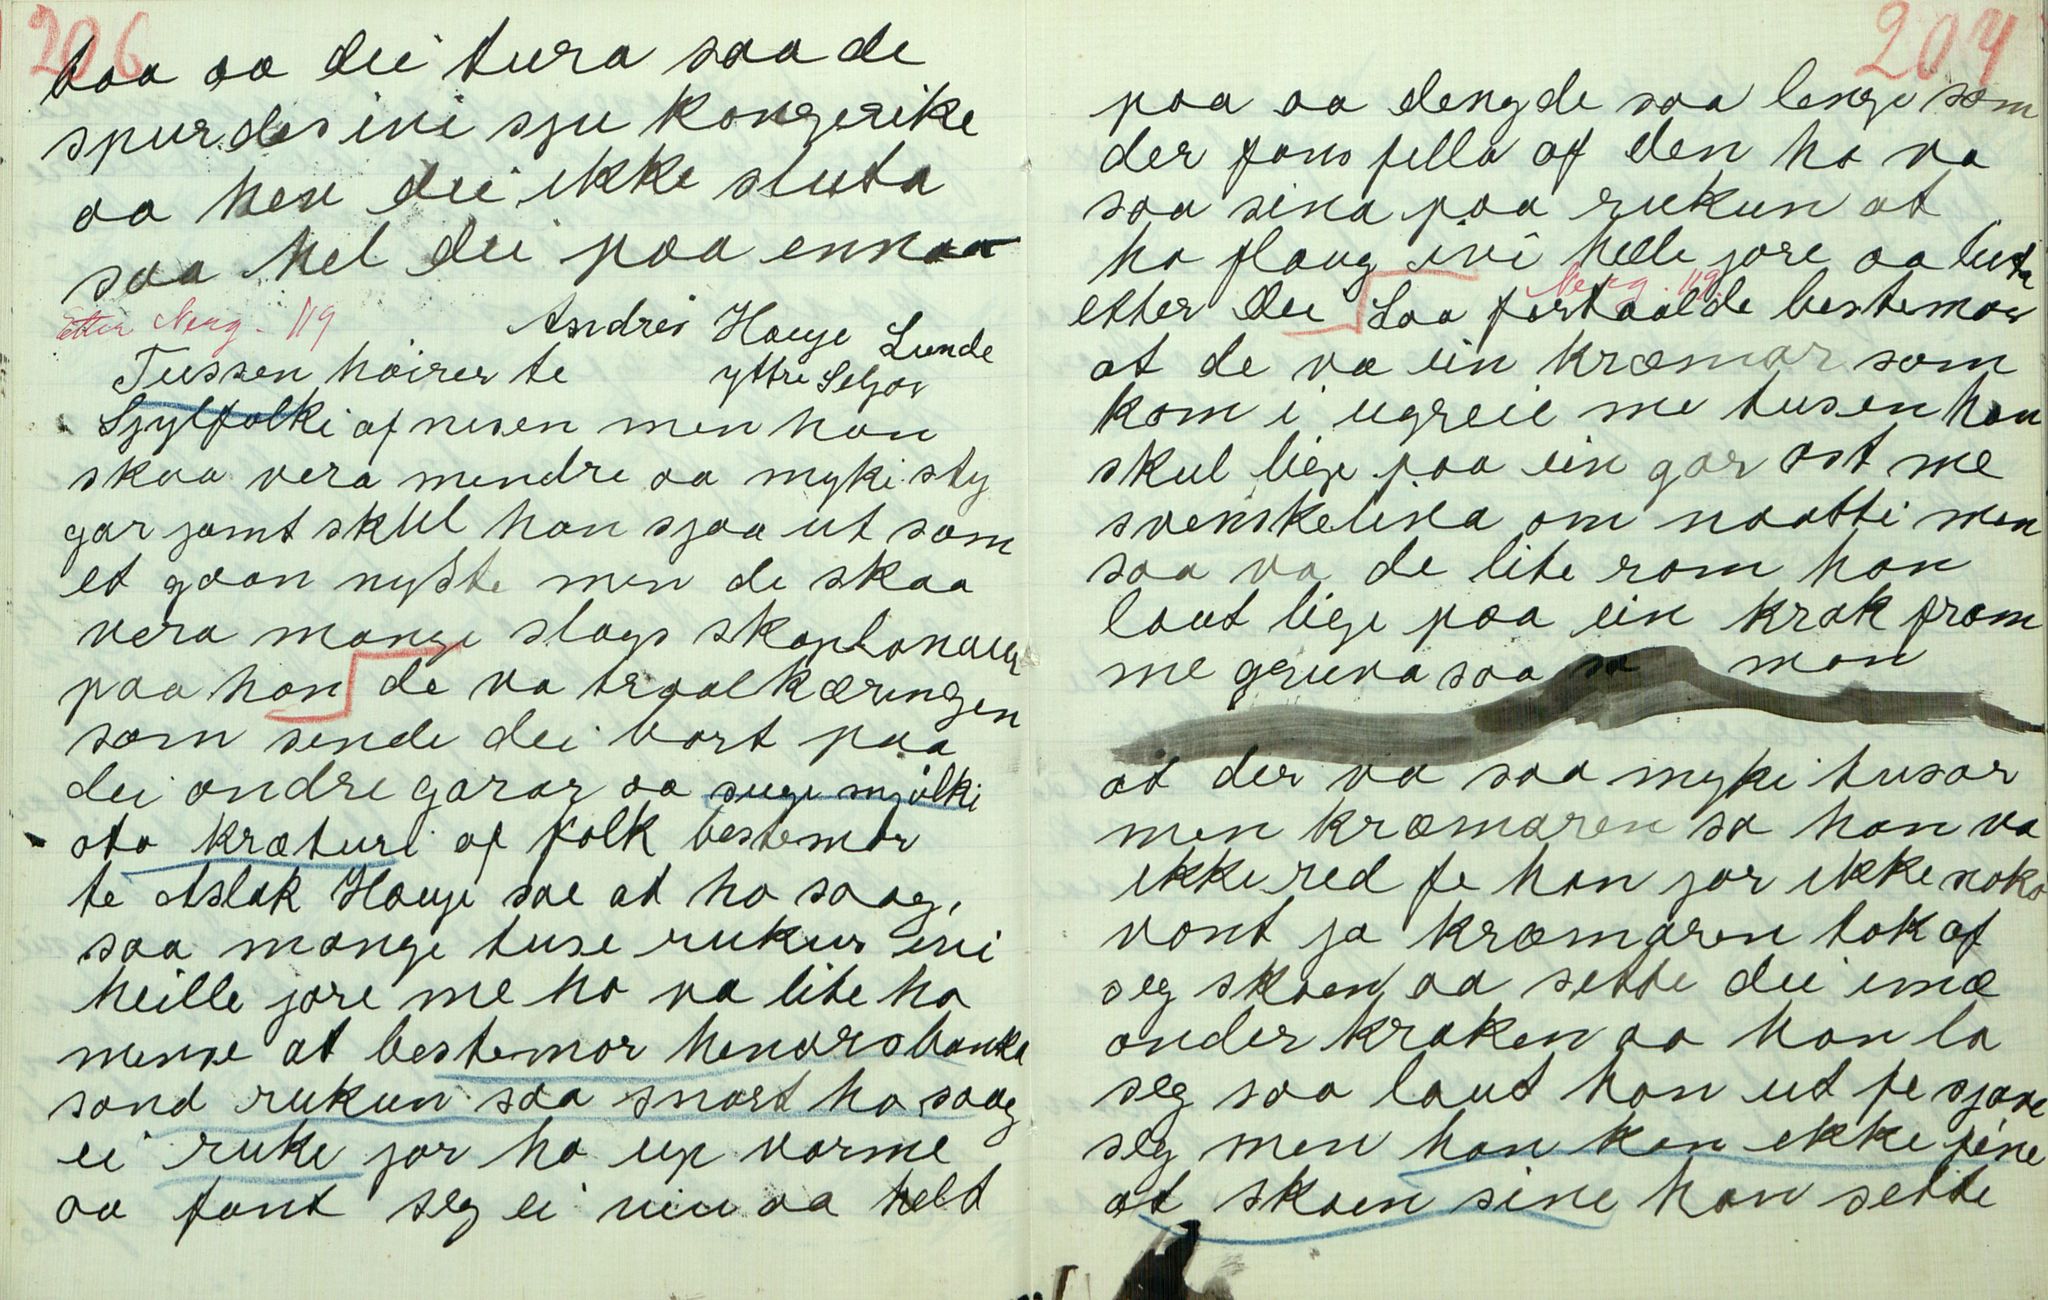 206
taa aa dei tura saa de
spurdes ivi sju kongerike
aa hev dei ikke sluta
saa hel dei paa ennaa
Etter Nerg. 119
Andres Hauge Lunde
yttre Seljor
Tussen höirer te
Sjylfolki af nesen men han
skaa vera mendre aa myki sty
gar jamt skul han sjaa ut som
et graan nyste men de skaa
vera mange slags skaplonaur
paa han de va traalkæringen
som sende dei bort paa
dei andre garar aa suge mjölki
sto kræturi af folk bestemor
te Aslak Hauge sae at ho saag,
saa mange tuse rukur ivi
heille jore me ho va lite ho
mense at bestemor henars banka
sond rukun saa snart ho saag
ei ruke jor ho up varme
aa fant seg ei viu aa helt
207
paa aa dengde saa lenge som
der fans filla af den ho va
saa sina paa rukun at
ho flaug ivi helle jore aa leita
etter dei Saa fortaalde bestemor
Nerg. 119.
at de va ein kræmar som
kom i ugreie me tusen han
skul lige paa ein gar ost me
svenskeliva om naatti men
saa va de lite rom han
laut lige paa ein krak fram
me gruva saa sa man
at der va saa myki tusar
men kræmaren sa han va
ikke red fe han jor ikke noko
vont ja kræmaren tok af
seg skoen aa sette dei imæ
onder kraken aa han la
seg saa laut han ut fe sjave
seg men han kan ikke fine
at skoen sine han sette